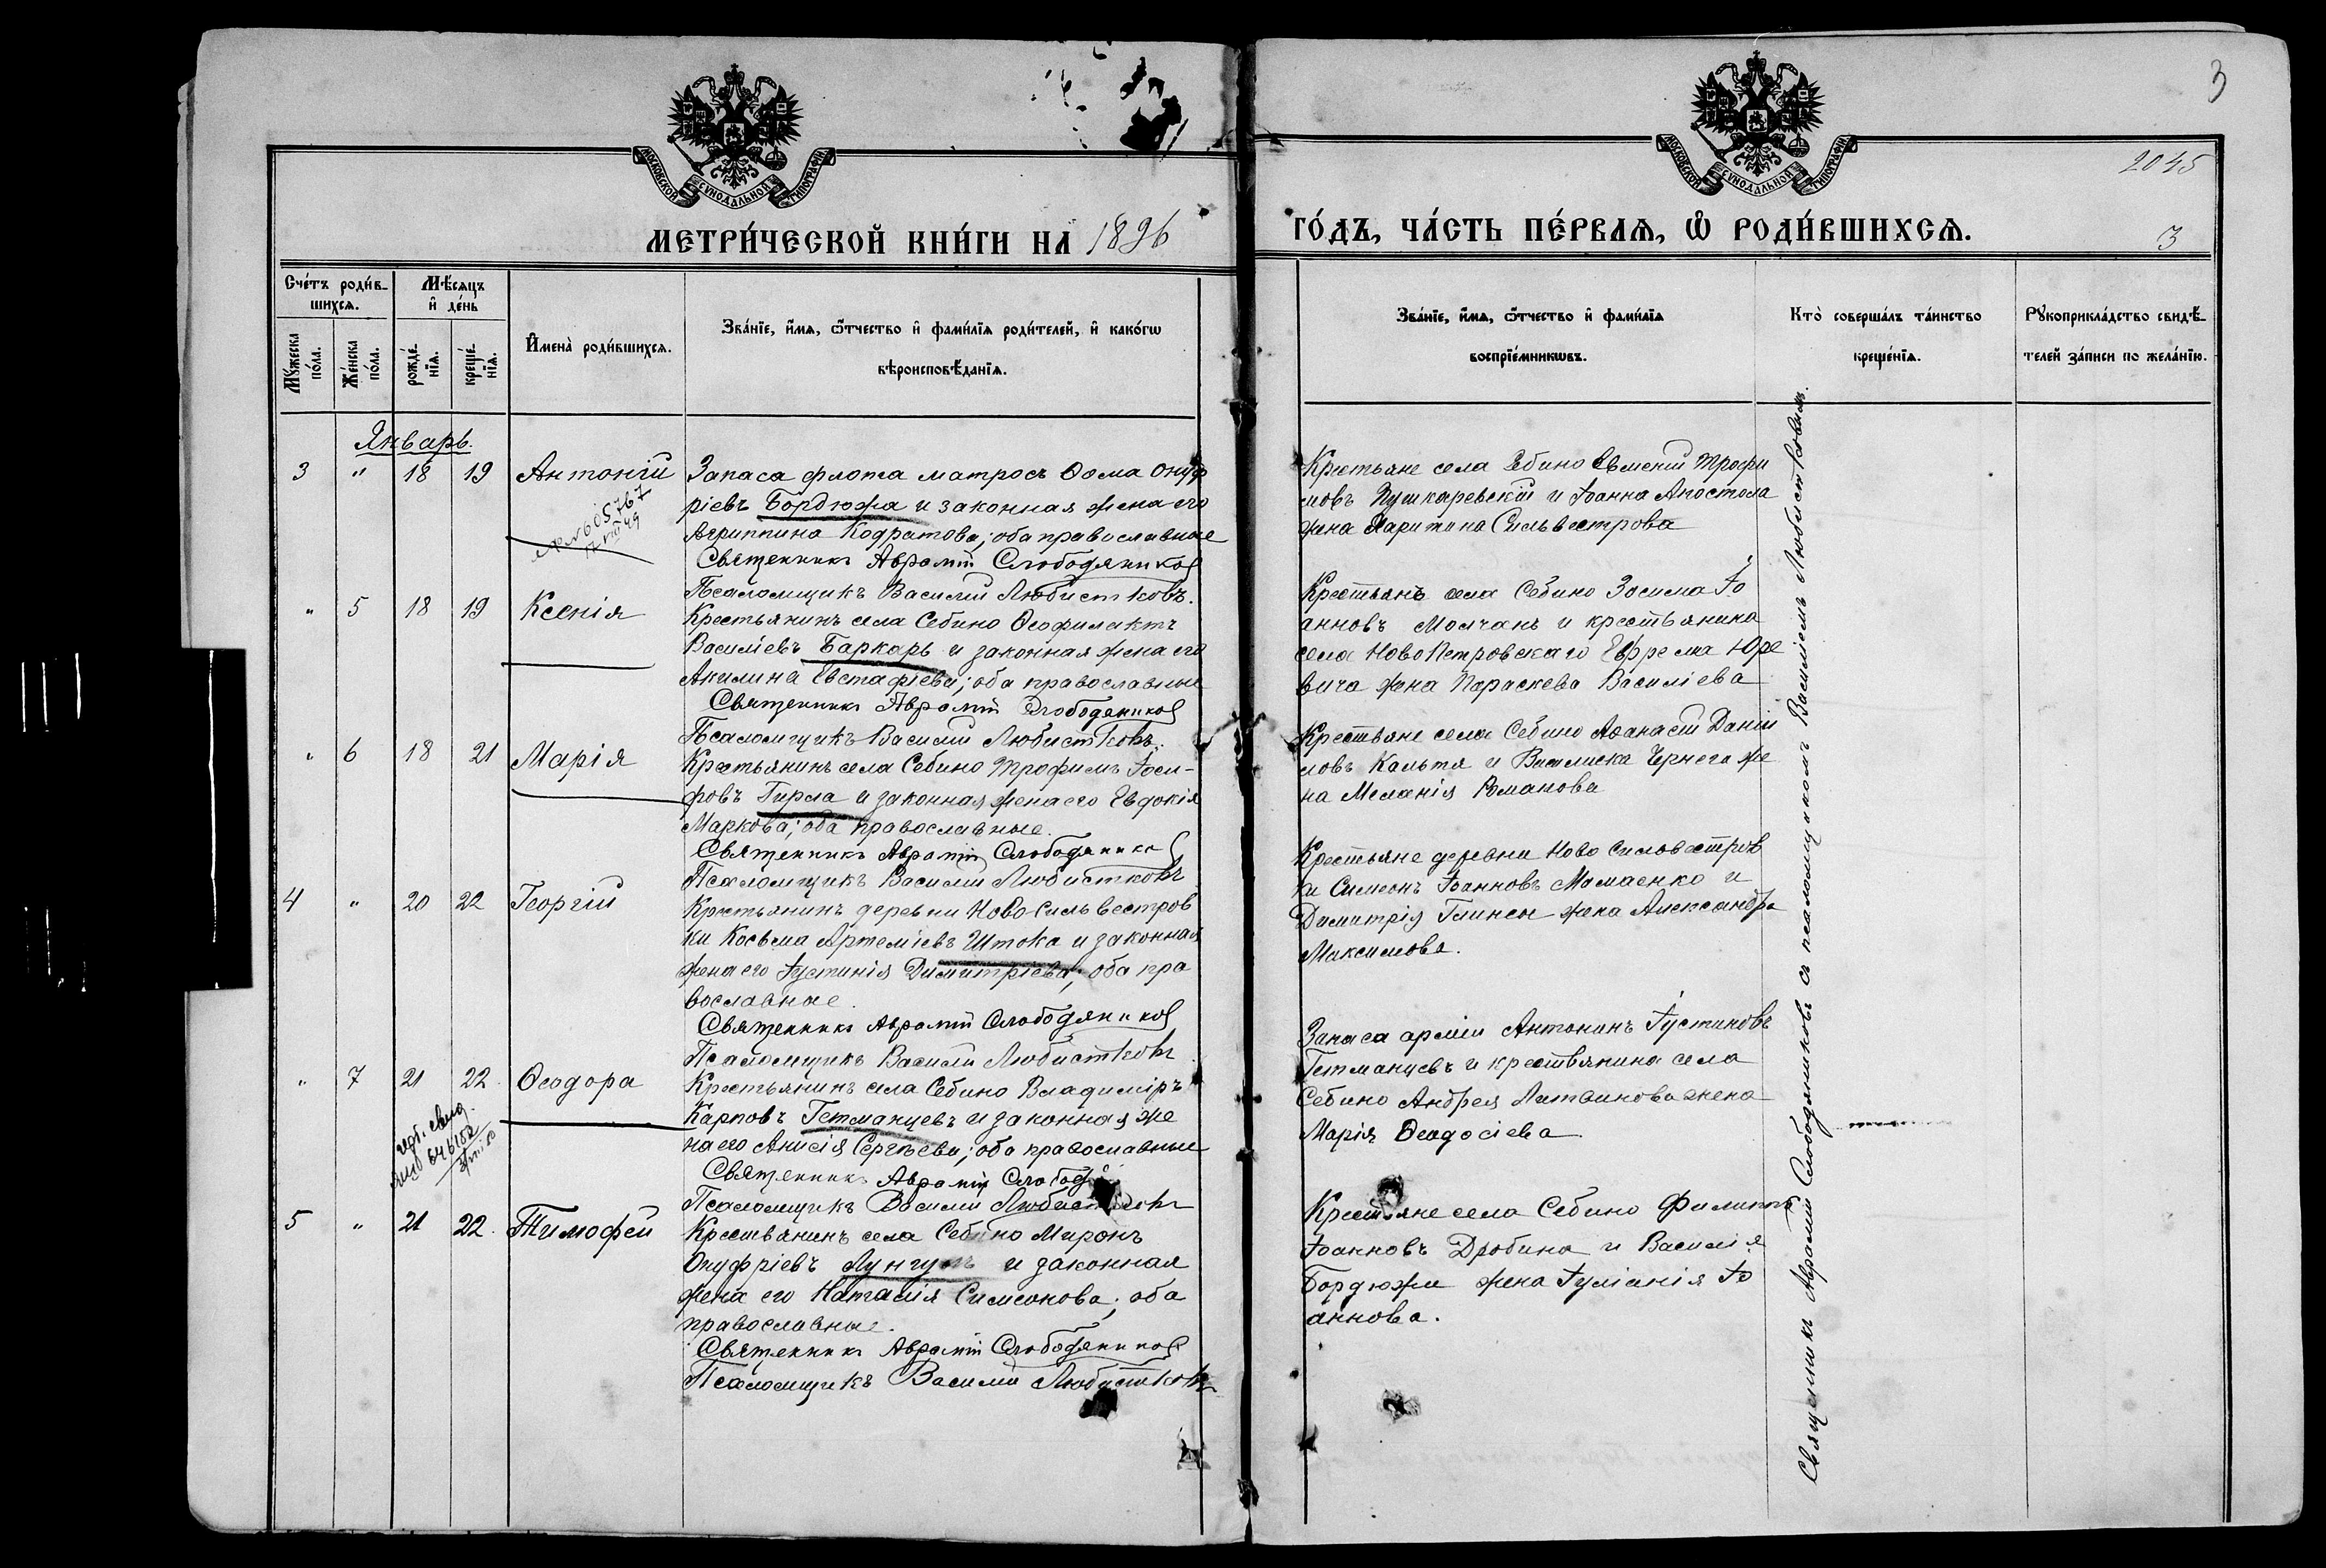 3
МОСКОВСКОЙ СѴНОДАЛЬНОЙ ТИПОГРАФІИ
МОСКОВСКОЙ СѴНОДАЛЬНОЙ ТИПОГРАФІИ
2045
МЕТРИ́ЧЕСКОЙ КНИ́ГИ НА 1896
ГО́ДЪ, ЧА́СТЬ ПЕ́РВАѦ, Ѡ҆ РОДИ́ВШИХСѦ.
3
Сче́тъ роди́в-
шихсѧ.
Мꙋ́жеска по́ла.
Же́нска по́ла.
Мѣ́сѧцъ
и҆ де́нь
рожде́-нїѧ.
креще́-нїѧ.
И҆мена̀ роди́вшихсѧ.
Зва́нїе, и҆́мѧ, ѻ҆́тчество и҆ фами́лїѧ роди́телей, и҆ како́гѡ
вѣроисповѣ́данїѧ.
Зва́нїе, и҆́мѧ, ѻ҆́тчество и҆ фами́лїѧ
воспрїе́мникѡвъ.
Кто̀ соверша́лъ та́инство
креще́нїѧ.
Рꙋкоприкла́дство свидѣ́-
телей за́писи по жела́нїю.
Январь.
3 " 18 19 Антоній
№605767
Запаса флота матросъ Ѳома Онуф
ріевъ Бордюжа и законная жена его
Агриппина Кодратова; оба православные
Священникъ Аврамій Слободяников
Псаломщикъ Василий Любистковъ.
Крестьяне села Себино Евменій Трофи
мовъ Пушкаревскій и Іоанна Апостола
жена Харитина Сильвестрова
" 5 18 19 Ксенія
Крестьянинъ села Себино Ѳеофилактъ
Василіевъ Баркарь и законная жена его
Акилина Евстафіева; оба православные
Священникъ Аврамій Слободяников
Псаломщикъ Василий Любистковъ.
Крестьянъ села Себино Зосима Іо
анновъ Молчанъ и крестьянина
села НовоПетровскаго Ефрема Юре
вича жена Параскева Василіева
" 6 18 21 Марія
Крестьянинъ села Себино Трофимъ Іоси-
фовъ Гирла и законная жена его Евдокія
Маркова; оба православные.
Священникъ Аврамій Слободяников
Псаломщикъ Василий Любистковъ
Крестьяне села Себино Аѳанасій Даніи
ловъ Кальтя и Василиска Чернега же
на Меланія Романова
4 " 20 22 Георгій
Крестьянинъ деревни Ново Сильвестров
ки Косьма Артеміевъ Штока и законная
жена его Іустинія Димитріева; оба пра
вославные.
Священникъ Аврамій Слободяников
Псаломщикъ Василий Любистковъ
Крестьяне деревни Ново Силовестров
ки Симеонъ Іоанновъ Мамаенко и
Димитрія жена Александра
Максимова.
" 7 21 22 Ѳеодора
646102
Крестьянинъ села Себино Владиміръ
Карповъ Гетманцевъ и законная же
на его Анисія Сергѣева; оба православные
Священникъ Аврамій
Псаломщикъ Василий Любистковъ
Запаса арміи Антонинъ Іустиновъ
Гетманцевъ и крестьянина села
Себино Андрея Литвинова жена
Марія Ѳеодосіева
5 " 21 22. Тимофей
Крестьянинъ села Себино Миронъ
Онуфріевъ Лунгулъ и законная
жена его Наталія Симеонова; оба
православные.
Священникъ Аврамій Слободяников
Псаломщикъ Василий Любистковъ
Крестьяне села Себино Филиппъ
Іоанновъ Дробина и Василія
Бордюжи жена Іуліанія Іо
аннова.
Священникъ Аврамій Слободяниковъ съ псаломщикомъ Василіемъ Любистковымъ.